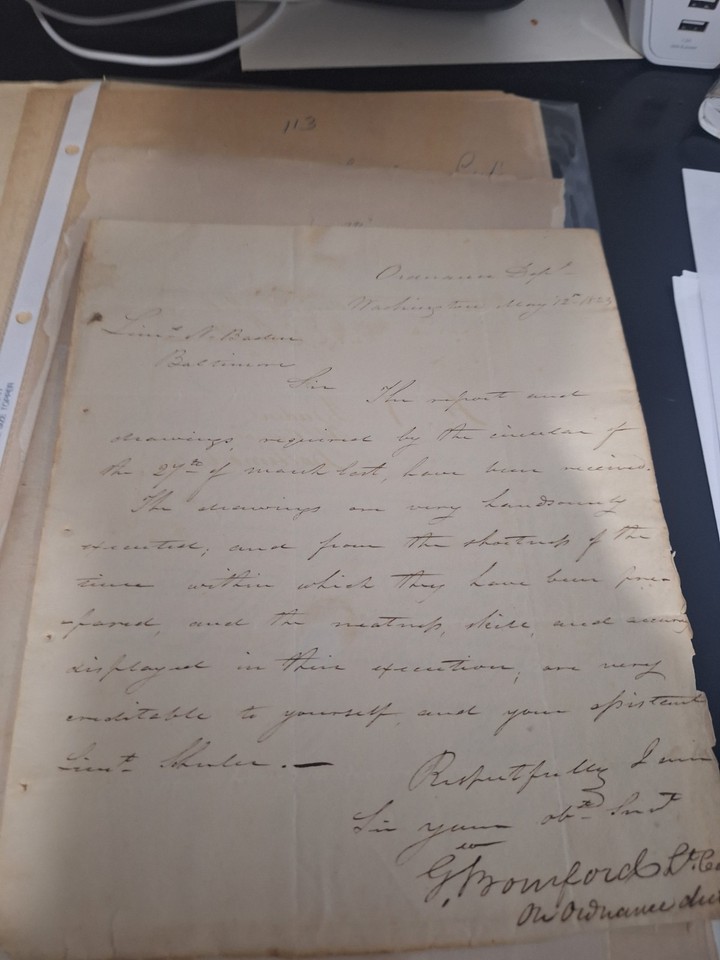 113
Ordnance Dept
Washington May 12th 1823
Lieut N. Baden
Baltimore
Sir The report and
drawings, required by the circular of
the 27th of march last, have been received.
The drawings are very handsomely
executed; and from the shortness of the
time within which they have been pre-
-pared, and the neatness, skill, and accuracy
displayed in their execution, are very
creditable to yourself and your assistant
Lieut.
Respectfully I
Sir your obt Svt
Geo Bomford Lt. Co
On Ordnance